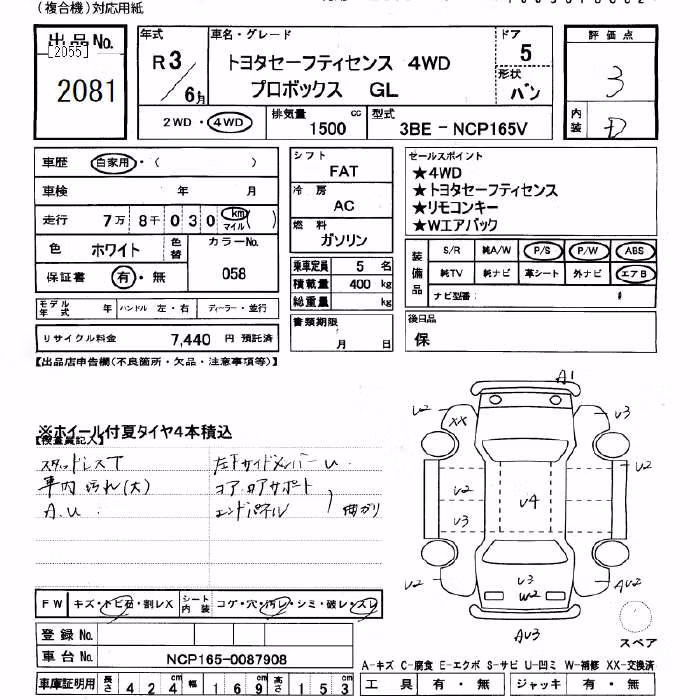 (複合機)対応用紙
出品No.
[2055]
2081
年式
R3
6月
車名・グレード
トヨタセーフティセンス 4WD
プロボックス GL
ドア
5
形状
バン
評価点
3
内装
D
2WD・4WD
排気量
1500 cc
型式
3BE-NCP165V
車歴 自家用・( )
車検 年 月
走行 7万 8千 0 3 0 km マイル ( )
色 ホワイト 色替
カラーNo.
058
保証書 有・無
モデル年式 年 ハンドル 左・右 ディーラー・並行
リサイクル料金 7,440 円 預託済
シフト
FAT
冷房
AC
燃料
ガソリン
乗車定員 5 名
積載量 400 kg
総重量 kg
書類期限
月 日
セールスポイント
★4WD
★トヨタセーフティセンス
★リモコンキー
★Wエアバック
装備品
S/R 純A/W P/S P/W ABS
純TV 純ナビ 革シート 外ナビ エアB
ナビ型番:
後日品
保
【出品店申告欄(不良箇所・欠品・注意事項等)】
※ホイール付夏タイヤ4本積込
【検査員記入】
スタッドレスT
車内 汚れ(大)
A.U.
左下サイドメンバーU.
コア.ロアサポート
エンドパネル
曲がり
A1
V2
XX
V3
V2
V2
V3
V4
V2
V3
W2
AV2
AV3
スペア
FW キズ・トビ石・割レX シート内装 コゲ・穴・汚レ・シミ・破レ・スレ
登録No.
車台No. NCP165-0087908
車庫証明用 長さ 424 cm 幅 169 cm 高さ 153 cm
A-キズ C-腐食 E-エクボ S-サビ U-凹ミ W-補修 XX-交換済
工具 有・無 ジャッキ 有・無